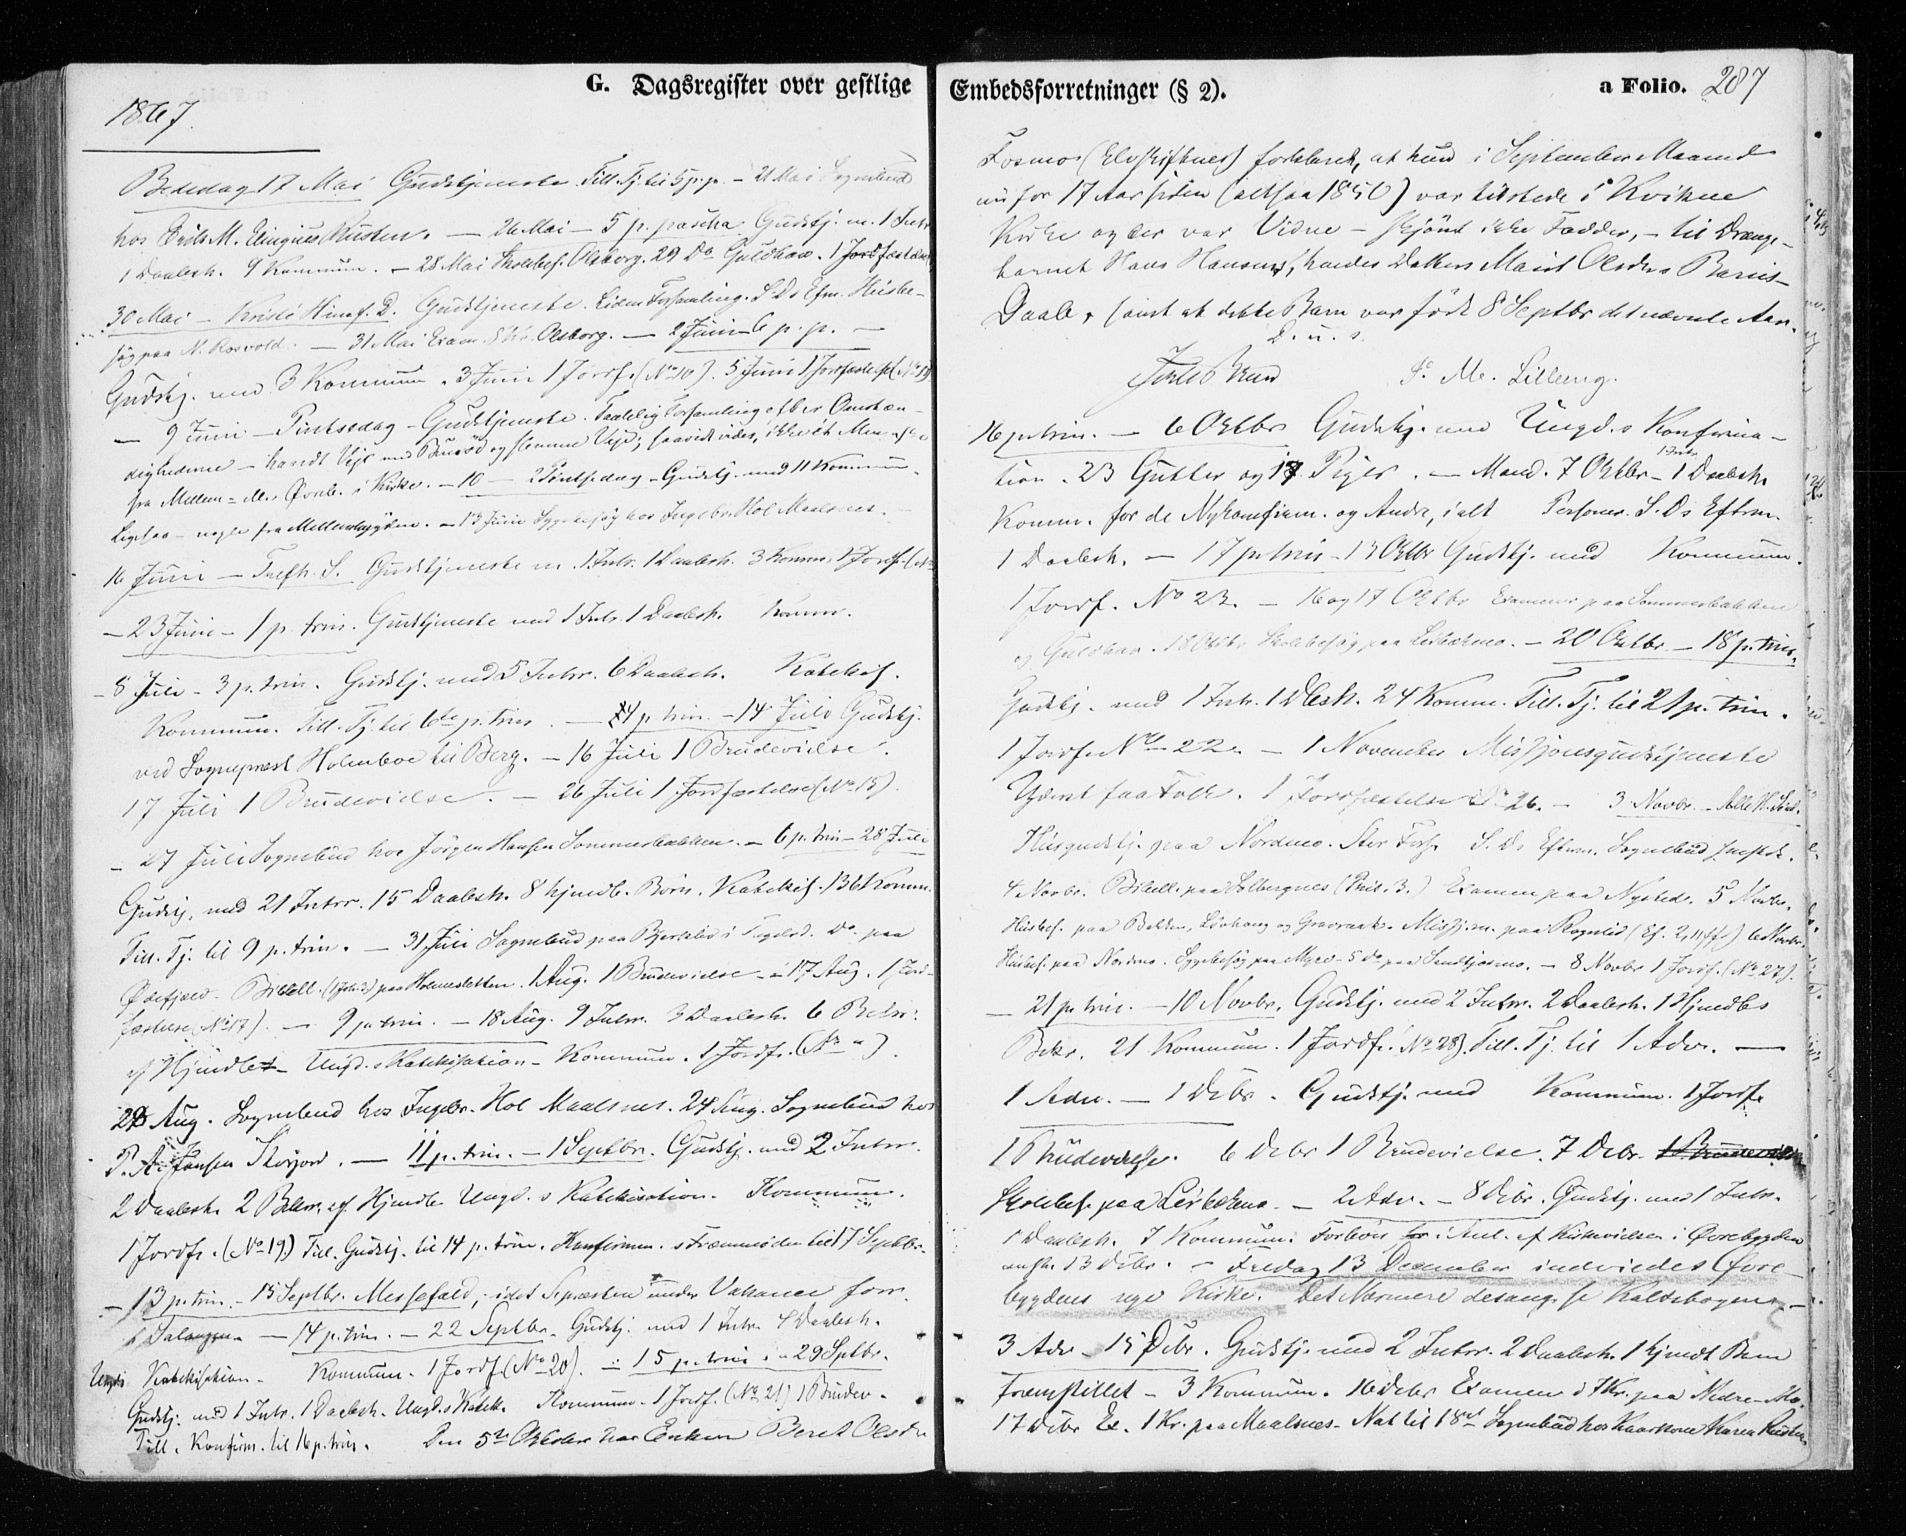 G. Dagsregister over gestlige
1867.
Bededag 17 Mai Gudstjeneste. Till. Tj. til 5 p. p. — 21 Mai Sognebud
hos Erik M. Elingius Rusten. — 26 Mai — 5 p. pascha Gudstj. m. 1 Intr.
1 Daabsh. 9 Kommun. — 28 Mai Skolebes. Olsborg. 29 Do Guldhav. 1 Jordfæstelse
30 Mai — Kristi Himf. D. Gudstjeneste. Liden Forsamling. S. D. Efm. Husbe-
søg paa N. Rosvold. — 31 Mai Exam. Olsborg. — 2 Juni 6 p. p. —
Gudstj. med 3 Kommun. 3 Juni 1 Jordf. (No 10). 5 Juni 1 Jordfæstelse
— 9 Juni — Pintsedag — Gudstjeneste. Taalelig Forsamling efter Omstæn-
dighederne — haardt Veir med og slemme Veje; saavidt vides, ikke èt Men-
fra Mellem- el. Øvreb. i Kirke. — 10 — 2 Pintsedag — Gudstj. med 11 Kommun.
Ligesaa — nogle fra Mellembygden. — 13 Juni Sygebesøg hos Ingebr. Hol Maalsnes.
16 Juni — Trefh. S. Gudstjeneste m. 1 Intr. 1 Daabsh. 3 Komm. 1 Jordf. (No
— 23 Juni — 1 p. trin. Gudstjeneste med 1 Intr. 1 Daabsh. Komm.
— 8 Juli — 3 p. trin. Gudstj. med 5 Intr. 6 Daabsh. Katekis.
Kommun. Till. Tj. til 6te p. trin. — 4 p. trin. — 14 Juli Gudstj.
ved Sognepræst Holmboe til Berg. — 16 Juli 1 Brudevielse.
17 Juli 1 Brudevielse. — 26 Juli 1 Jordfæstelse (No 15).
— 27 Juli Sognebud hos Jörgen Hansen Sommerbakken. — 6 p. trin — 28 Juli
Gudstj. med 21 Intrr. 15 Daabsh. 8 hjmdb. Börn. Katekis. 136 Komm.
Till. Tj. til 9 p. trin. — 31 Juli Sognebud paa Bjerkelid i Do. paa
Ödefjeld. Bibell. paa Holmesletten. 1 Aug. 1 Brudevielse — 17 Aug. 1 Jord-
fæstelse (No 17). — 9 p. trin. — 18 Aug. 9 Intrr. 3 Daabsh. 6 Bekr.
af Hjmdbt — Ungd.s Katekisation — Kommun. 1 Jordf. (No ").
23 Aug. Sognebud hos Ingebr. Hol Maalsnes. 24 Aug. Sognebud hos
P. A. Jansen Skogen. — 11 p. trin. — 1 Septbr. Gudstj. med 2 Intrr.
2 Daabsh. 2 Bekr. af Hjmdb. Ungd.s Katekisation. Kommun.
1 Jordf. (No 19) Till. Gudstj. til 14 p. trin. Konfirmm.s Fremmöde til 17 Septbr.
— 13 p. trin. — 15 Septbr. Messefald, idet Sepræsten under Vakance forr.
i Salangen. — 14 p. trin. — 22 Septbr. Gudstj. med 1 Intr. 4 Daabsh.
Ungds Katekisation — Kommun. 1 Jordf. (No 20). — 15 p. trin. — 29 Sptbr.
Gudstj. med 1 Intr. 1 Daabsh. Ungd.s Katek. Kommun. 1 Jordf. (No 21) 1 Brudev.
Till. Konfirm. til 16 p. trin. Den 5te Oktober har Enken Beret Olsdr.
Embedsforretninger (§ 2).
a Folio. 287
Fosmo (Elvskiftnes) forklaret, at hun i September Maaned
nu for 17 Aar siden (altsaa 1850) var tilstede i Kvikne
Kirke og der var Vidne — skjönt ikke Fadder, — til Drenge-
barnet Hans Hansens, hendes Datters Marit Olsdr.s Barns-
Daab, samt at dette Barn var födt 8 Septbr det nævnte Aar.
D. u. s.
16 p. trin. — 6 Oktbr Gudstj. med Ungd.s Konfirma-
tion. 23 Gutter og 17 Piger. — Mand. 7 Oktbr — 1 Intr. 1 Daabsh.
Komm. for de Nykonfirm. og Andre, ialt Personer. S. D. Eftm.
1 Daabsh. — 17 p. trin — 13 Oktbr Gudstj. med Kommun.
1 Jordf. No 23. — 16 og 17 Oktbr Examener paa Sommerbakken
og Guldhav. 18 Oktbr Skolebesøg paa Leirbækmo. — 20 Oktbr — 18 p. trin.
Gudstj. med 1 Intr. 1 Dbsh. 24 Komm. Till. Tj. til 21 p. trin.
1 Jordf. No 22. — 1 November Missjonsgudstjeneste
Yderst faa Folk. 1 Jordfæstelse No 26. — 3 Novbr. — Alle H. Sönd.
Husgudstj. paa Nordmo. Stor Fors. S. D. Eftrm. Sognebud
4 Novbr. Bibell. paa Solbergnes (Phil. 3.) Examen paa Nysted. 5 Novbr.
Husbes. paa Bakken, Lövhaug og Gravraak. Missj. m. paa Rognlid (Ef. 2, 11 ff.) 6 Novbr.
Husbes. paa Nordmo. Sygebesøg paa Myre — 5 Do paa — 8 Novbr 1 Jordf. (No 27).
— 21 p. trin. — 10 Novbr. Gudstj. med 2 Intrr. 2 Daabsh. 1 Hjmdbs
Bekr. 21 Kommun. 1 Jordf. (No 28). Till. Tj. til 1 Adv. —
1 Adv. — 1 Debr. Gudstj. med Kommun. 1 Jordf.
1 Brudevielse. 6 Debr 1 Brudevielse. 7 Debr.
Skolebes. paa Leirbekmo. — 2 Adv. — 8 Debr. Gudstj. med 1 Intr.
1 Daabsh. 7 Kommun. Forbön i Anl. af Kirkevielsen i Øvrebygden
13 Debr. — Fredag 13 December indviedes Øvre-
bygdens nye Kirke. Det Nærmere desang. se Kaldsbogen. —
3 Adv. — 15 Debr. Gudstj. med 2 Intrr. 2 Daabsh. 1 hjmdt Barn
fremstillet — 3 Kommun. 16 Debr Examen i 7 Kr. paa Nedre-Mo.
17 Debr Ex. 1 Kr. paa Maalsnes. Nat til 18de Sognebud hos Kaarkone Karen